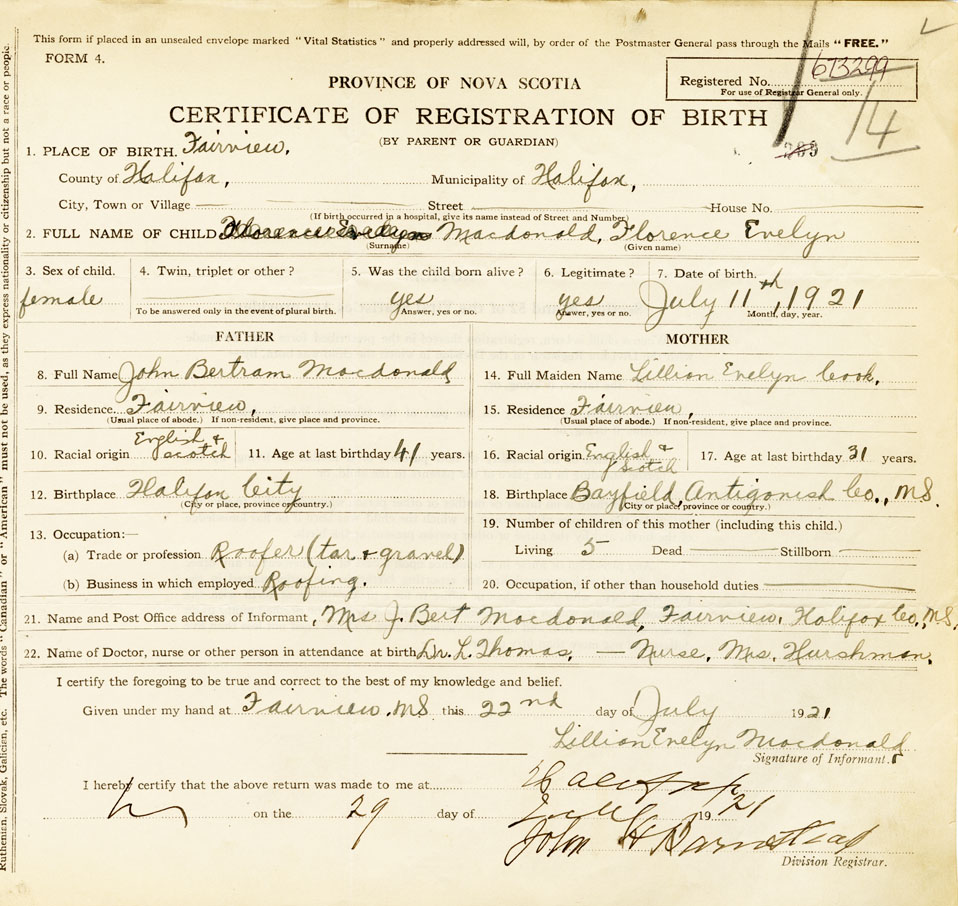 This form if placed in an unsealed envelope marked "Vital Statistics" and properly addressed will, by order of the Postmaster General pass through the Mails "FREE."
FORM 4.
PROVINCE OF NOVA SCOTIA
Registered No. 673299
For use of Registrar General only.
CERTIFICATE OF REGISTRATION OF BIRTH
14
(BY PARENT OR GUARDIAN)
1. PLACE OF BIRTH. Fairview,
County of Halifax, Municipality of Halifax,
City, Town or Village Street House No.
(If birth occurred in a hospital, give its name instead of Street and Number)
2. FULL NAME OF CHILD Macdonald, Florence Evelyn
(Surname) (Given name)
3. Sex of child. 4. Twin, triplet or other? 5. Was the child born alive? 6. Legitimate? 7. Date of birth.
female yes yes July 11th, 1921
To be answered only in the event of plural birth. Answer, yes or no. Answer, yes or no. Month, day, year.
FATHER MOTHER
8. Full Name John Bertram Macdonald
9. Residence Fairview,
(Usual place of abode.) If non-resident, give place and province.
10. Racial origin English & scotch 11. Age at last birthday 41 years.
12. Birthplace Halifax City
(City or place, province or country.)
13. Occupation:—
(a) Trade or profession Roofer (tar & gravel)
(b) Business in which employed Roofing.
14. Full Maiden Name Lillian Evelyn Cook,
15. Residence Fairview,
(Usual place of abode.) If non-resident, give place and province.
16. Racial origin English & scotch 17. Age at last birthday 31 years.
18. Birthplace Bayfield, Antigonish Co., NS.
(City or place, province or country.)
19. Number of children of this mother (including this child.)
Living 5 Dead Stillborn
20. Occupation, if other than household duties
21. Name and Post Office address of Informant, Mrs J. Bert Macdonald, Fairview, Halifax Co., NS.
22. Name of Doctor, nurse or other person in attendance at birth Dr. L. Thomas, — Nurse, Mrs. Hurshman,
I certify the foregoing to be true and correct to the best of my knowledge and belief.
Given under my hand at Fairview, NS this 22nd day of July 1921
Lillian Evelyn Macdonald
Signature of Informant.
I hereby certify that the above return was made to me at Halifax
on the 29 day of July 1921
John H Barnstead
Division Registrar.
Ruthenian, Slovak, Galician, etc. The words "Canadian" or "American" must not be used, as they express nationality or citizenship but not a race or people.